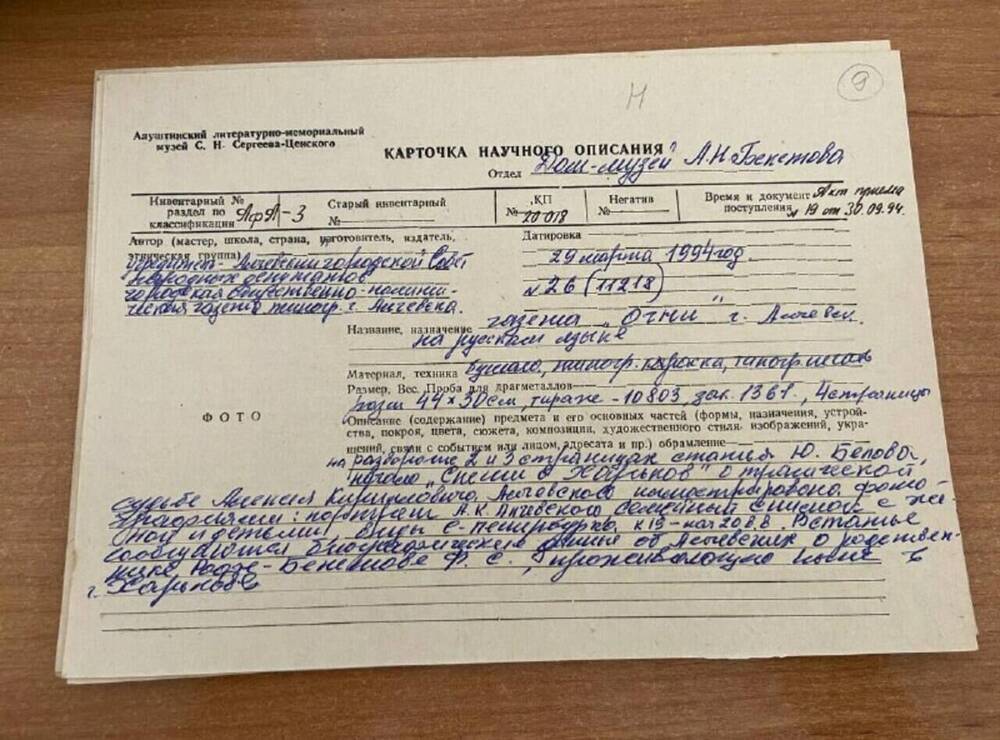 Н
9
Алуштинский литературно-мемориальный
музей С. Н. Сергеева-Ценского
КАРТОЧКА НАУЧНОГО ОПИСАНИЯ
Отдел Дом-музей А.Н. Бекетова
Инвентарный № раздел по классификации АфЛ-3
Старый инвентарный №
КП № 20018
Негатив №
Время и документ поступления Акт приема № 19 от 30.09.94.
Автор (мастер, школа, страна, изготовитель, издатель,
этническая группа)
Учредитель - Алчевский городской Совет
народных депутатов
городская общественно-полити-
ческая газета типогр. г. Алчевска.
Датировка
29 марта 1994 год.
№ 26 (11218)
Название, назначение газета „Огни" г. Алчевск.
на русском языке
Материал, техника Бумага, типогр. краска, типогр. печать
Размер, Вес. Проба для драгметаллов
разм 44×30см, тираж - 10803, зак. 1361, 4 страницы
ФОТО
Описание (содержание) предмета и его основных частей (формы, назначения, устрой-
ства, покроя, цвета, сюжета, композиции, художественного стиля изображений, укра-
шений, связи с событием или лицом, адресата и пр.) обрамление
на развороте 2 и 3 страницах статья Ю. Белова,
начало „ в Харьков" о трагической
судьбе Алексея Кирилловича Алчевского иллюстрирована фото-
графиями: портрет А.К Алчевского семейный снимок с же-
ной и детьми, виды С-петербурга к 19 - нач 20 в в. В статье
сообщаются биографические данные об Алчевских о родствен-
нике Ф. С., проживающего ныне в
г. Харькове